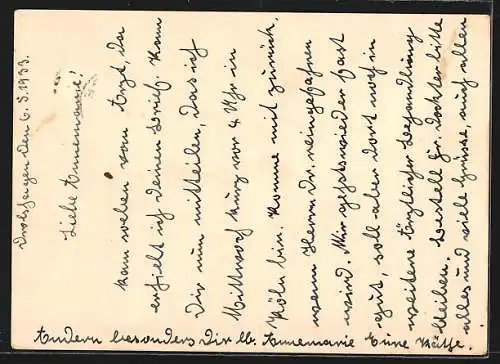 Drolshagen den 6. 5. 1933.
Liebe Annemarie!
Kam soeben vom Arzt, da
erhielt ich deinen Brief. Kann
Dir nun mitteilen, das ich
Mittwoch kurz vor 4 Uhr in
Köln bin. Komme mit zurück,
wenn Herrn Dr. reingefahren
wird. Mir gehts wieder fast
gut, soll aber dort noch in
weitere Ärztlicher Behandlung
bleiben. Bestell Fr. Doktor bitte
alles und viele Grüsse, auch allen
Andern besonders Dir lb. Annemarie Eure Käthe.